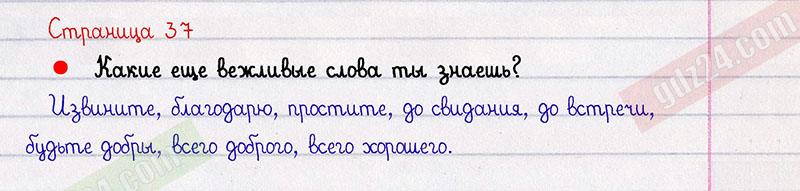 Страница 37
Какие еще вежливые слова ты знаешь?
Извините, благодарю, простите, до свидания, до встречи,
будьте добры, всего доброго, всего хорошего.
gdz24.com